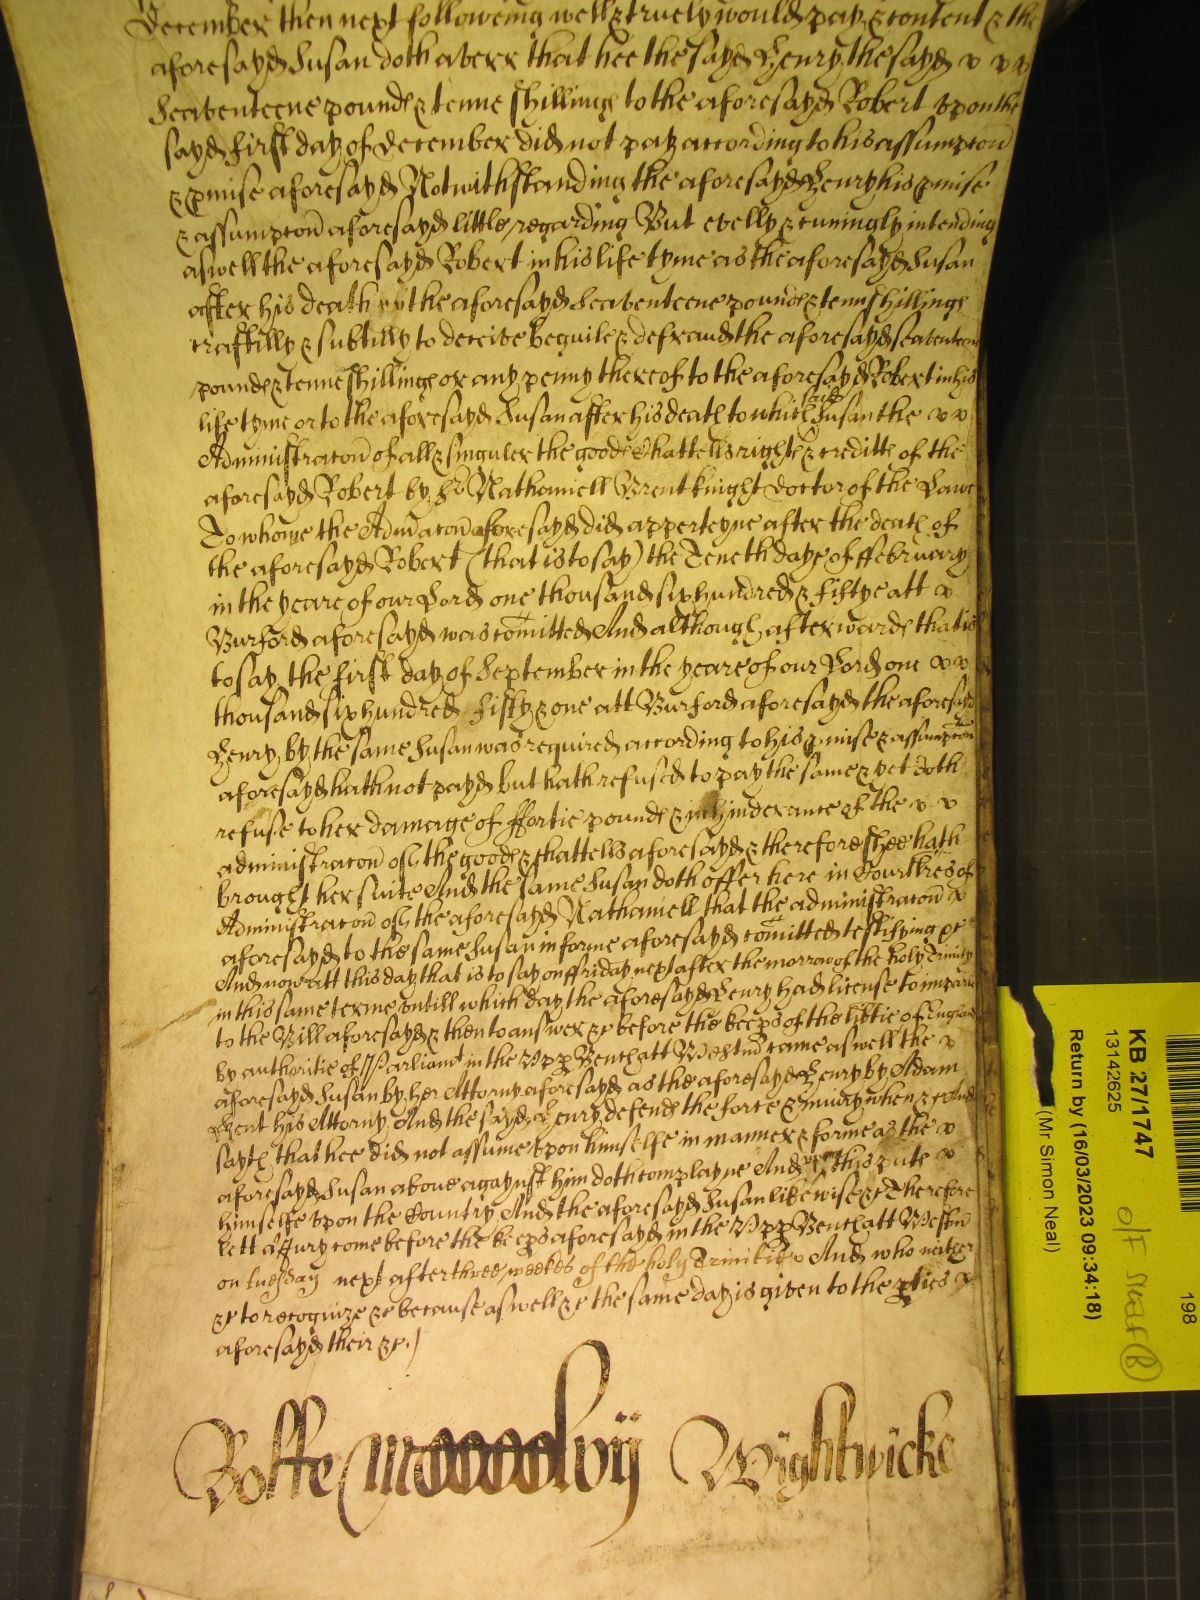 December then next followeing well & truely would pay & content & the
aforesayd Susan doth averr that hee the sayd Henry the sayd
Seaventeene pound & tenne shillings to the aforesayd Robert upon the
sayd first day of December did not pay according to his assumpcon
& pmise aforesayd Notwithstanding the aforesayd Henry his pmise
& assumpcon aforesayd little regarding But evelly & cuningly intending
aswell the aforesayd Robert in his life tyme as the aforesayd Susan
after his death of the aforesayd Seaventeene pounds & tenn shillings
craftilly & subtilly to deceive beguile & defraud the aforesayd seaventeen
pounds & tenne shillings or any penny thereof to the aforesayd Robert in his
life tyme or to the aforesayd Susan after his death to which said Susan the
Administracon of all & singuler the goods Chattells rights & creditts of the
aforesayd Robert by Sr Nathaniell Brent knight doctor of the Lawe
To whome the Admacon aforesayd did apperteyne after the death of
the aforesayd Robert (that is to say) the Teneth daye of ffebruary
in the yeare of our Lord one thousand six hundred & fiftye att
Burford aforesayd was comitted And although afterwards that is
to say the first day of September in the yeare of our Lord one
thousand six hundred fifty & one att Burford aforesayd the aforesayd
Henry by the same Susan was required according to his pmise & assumpcon
aforesayd hath not payd but hath refused to pay the same & yet doth
refuse to her damage of ffortie pounds & in hinderance of the
administracon of the goods & chattells aforesayd & therefore shee hath
brought her suite And the same Susan doth offer here in Court lres of
Administracon of the aforesayd Nathaniell that the administracon
aforesayd to the same Susan in forme aforesayd comitted testifying &c
And now att this day that is to say on ffriday next after the morrow of the holy Trinity
in this same terme untill which day the aforesayd Henry had license to imparle
to the Bill aforesayd & then to answer &c before the keeps of the libtie of England
by authoritie of Parliamt in the Upp Bench att Westm came aswell the
aforesayd Susan by her Attorny aforesayd as the aforesayd Henry by Adam
Kent his Attorny And the sayd Henry defends the force & iniury when &c And
sayth that hee did not assume upon himselfe in manner & forme as the
aforesayd Susan above agaynst him doth complayne And upon this puts
himselfe upon the Country And the aforesayd Susan likewise &c Therefore
lett a Jury come before the keeps aforesayd in the Upp Bench att Westm
on tuesday next after three weekes of the holy Trinitie And who neither
&c to recognize &c because aswell &c the same day is given to the pties
aforesayd their &c.
Rolle Mdccccclvij Wightwicke
KB 27/1747
13142625
Return by (16/03/2023 09:34:18)
(Mr Simon Neal)
198